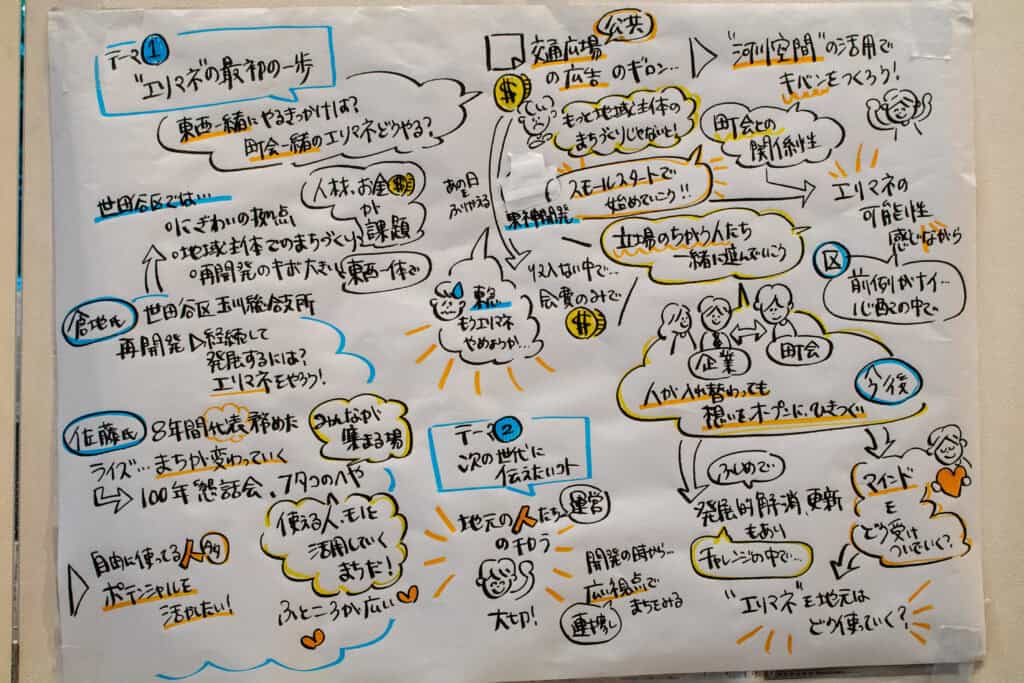 テーマ1
"エリマネ"の最初の一歩
東西一緒にやるきっかけは?
町会一緒のエリマネどうやる?
世田谷区では…
にぎわいの拠点
地域主体でのまちづくり
人材、お金$
が
課題
東西一体で
倉地氏
世田谷区 玉川総合支所
再開発▷継続して
発展するには?
エリマネをやろう!
佐藤氏
8年間代表務めた
ライズ…まちが変わっていく
100年懇話会、フタコのへや
みんなが
集まる場
自由に使ってる人
ポテンシャルを
活かしたい!
使える人、モノを
活用していく
まちだ!
ふところが広い
公共
交通広場
の広告のギロン…
$
もっと地域主体の
まちづくりじゃないと!
あの日
を
ふりやる
東神開発
スモールスタートで
始めていこう!!
立場のちがう人たち
一緒に並んでいこう
収入ない中で…
会費のみで
$
もうエリマネ
やめようか…
"河川空間"の活用で
キバンをつくろう!
町会との
関係性
エリマネの
可能性
感じながら
区
前例がナイ…
心配の中で
企業
町会
今後
人が入れ替わっても
想いをオープンに、ひきつぐ
ふしめで…
発展的解消、更新
もあり
チャレンジの中で…
マインド
を
どう受け
ついでいく?
"エリマネ"を地元は
どう使っていく?
テーマ2
次の世代に
伝えたいコト
地元の人たち
のチカラ
大切!
運営
開発の時から…
広い視点で
まちをみる